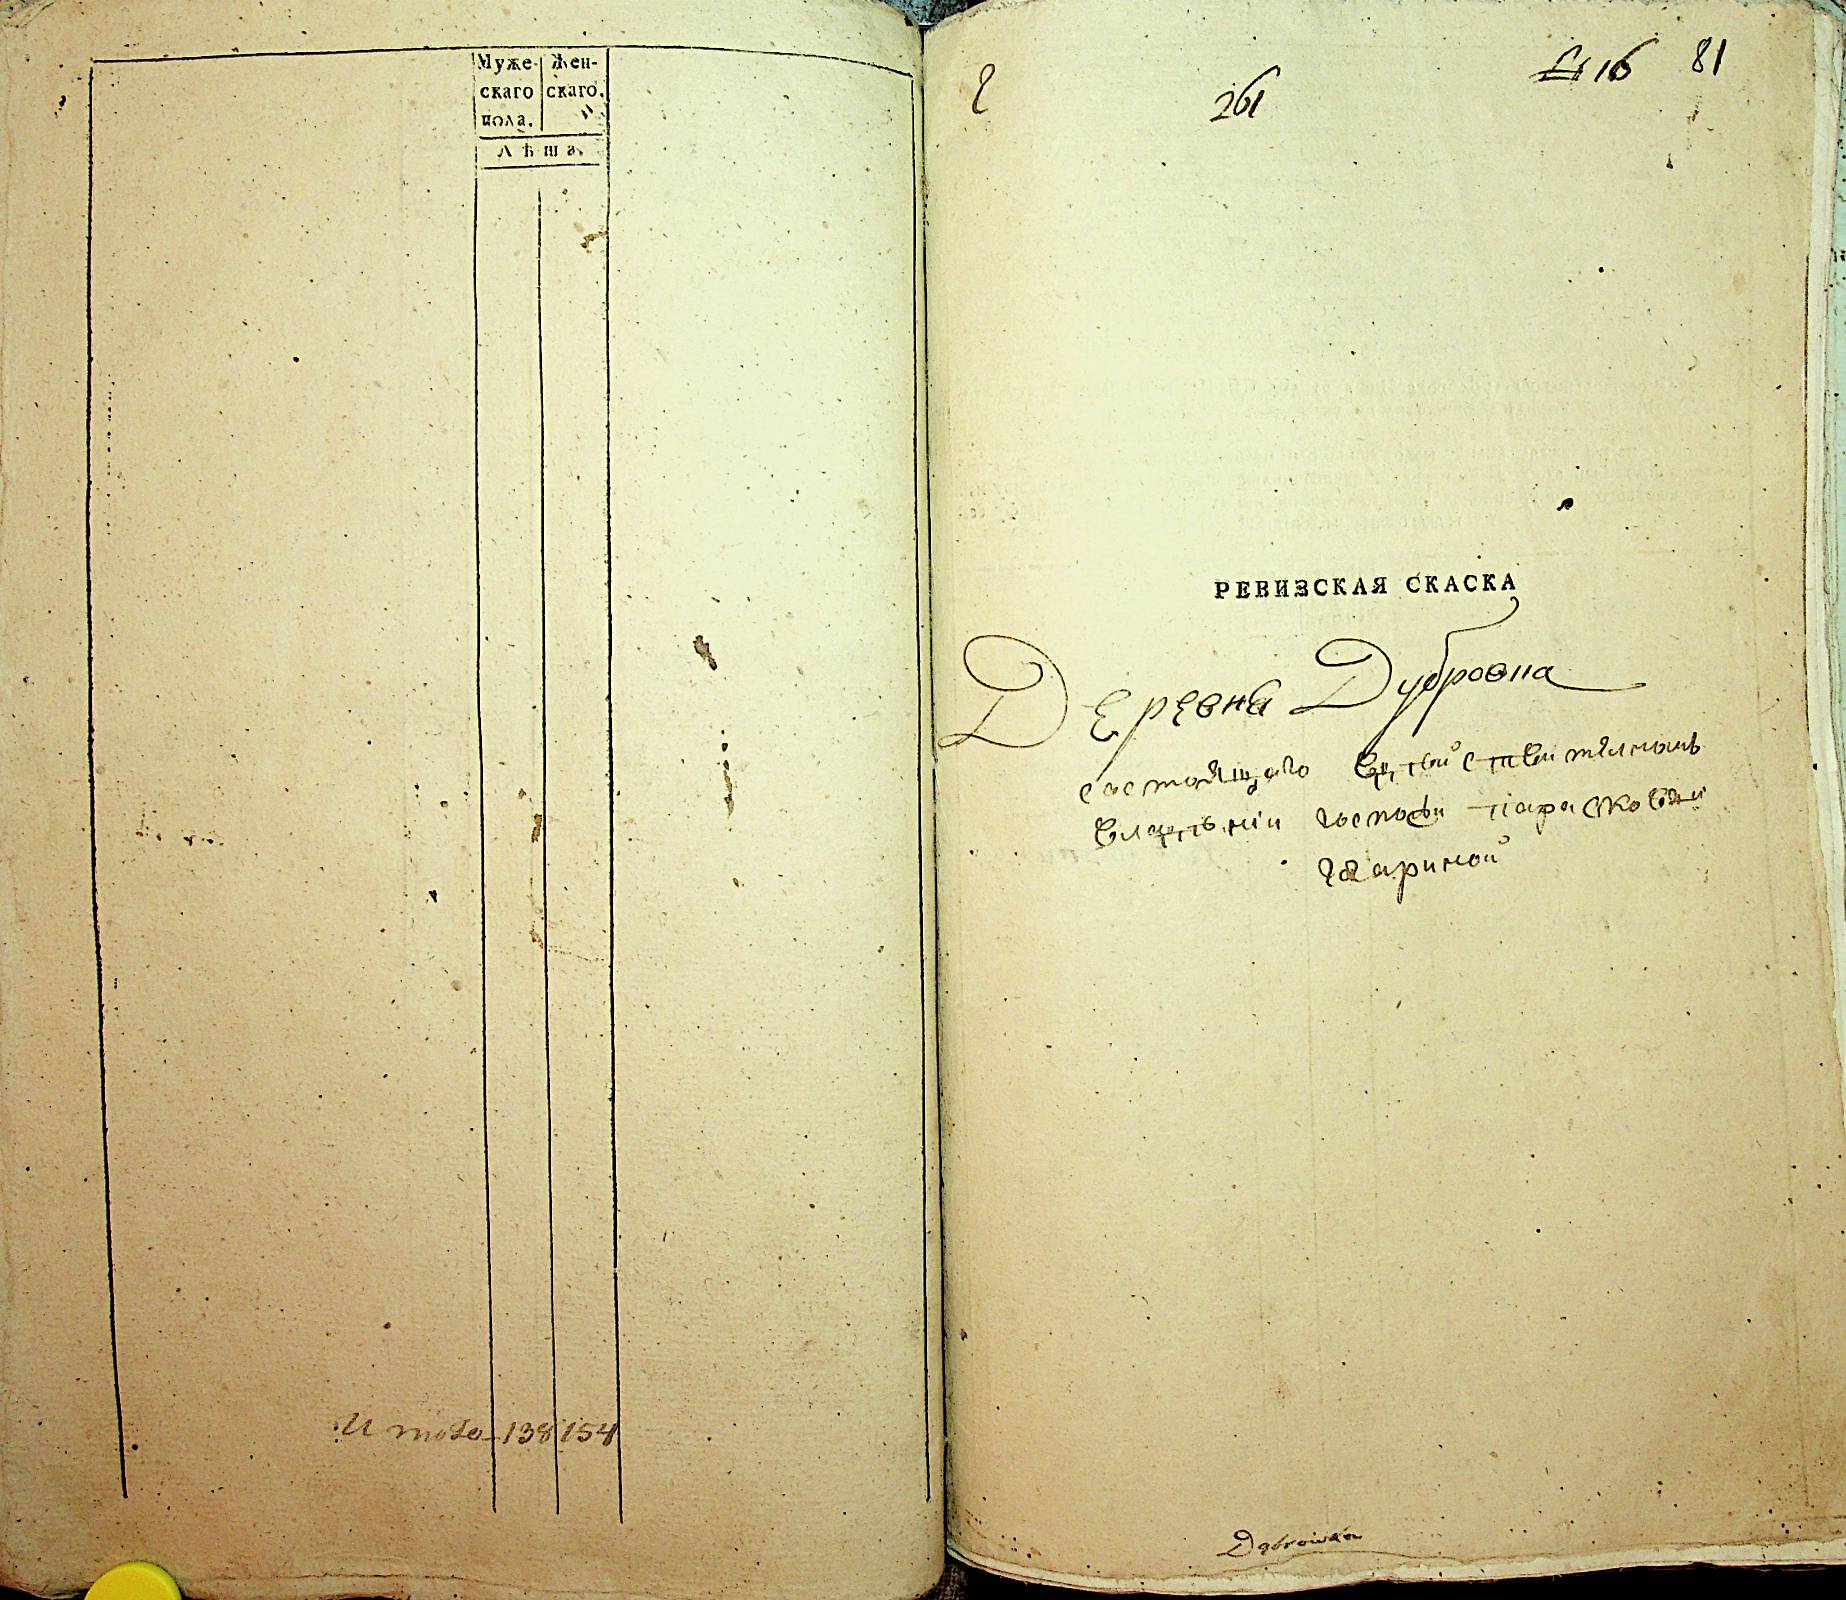 Муже-
скаго
пола.
Жен-
скаго.
Лѣта.
Итого 138 154
261
16 81
РЕВИЗСКАЯ СКАСКА
Деревня Дубровна
состоящаго
госпожи Парасковьи
Гагариной
Dąbrowna